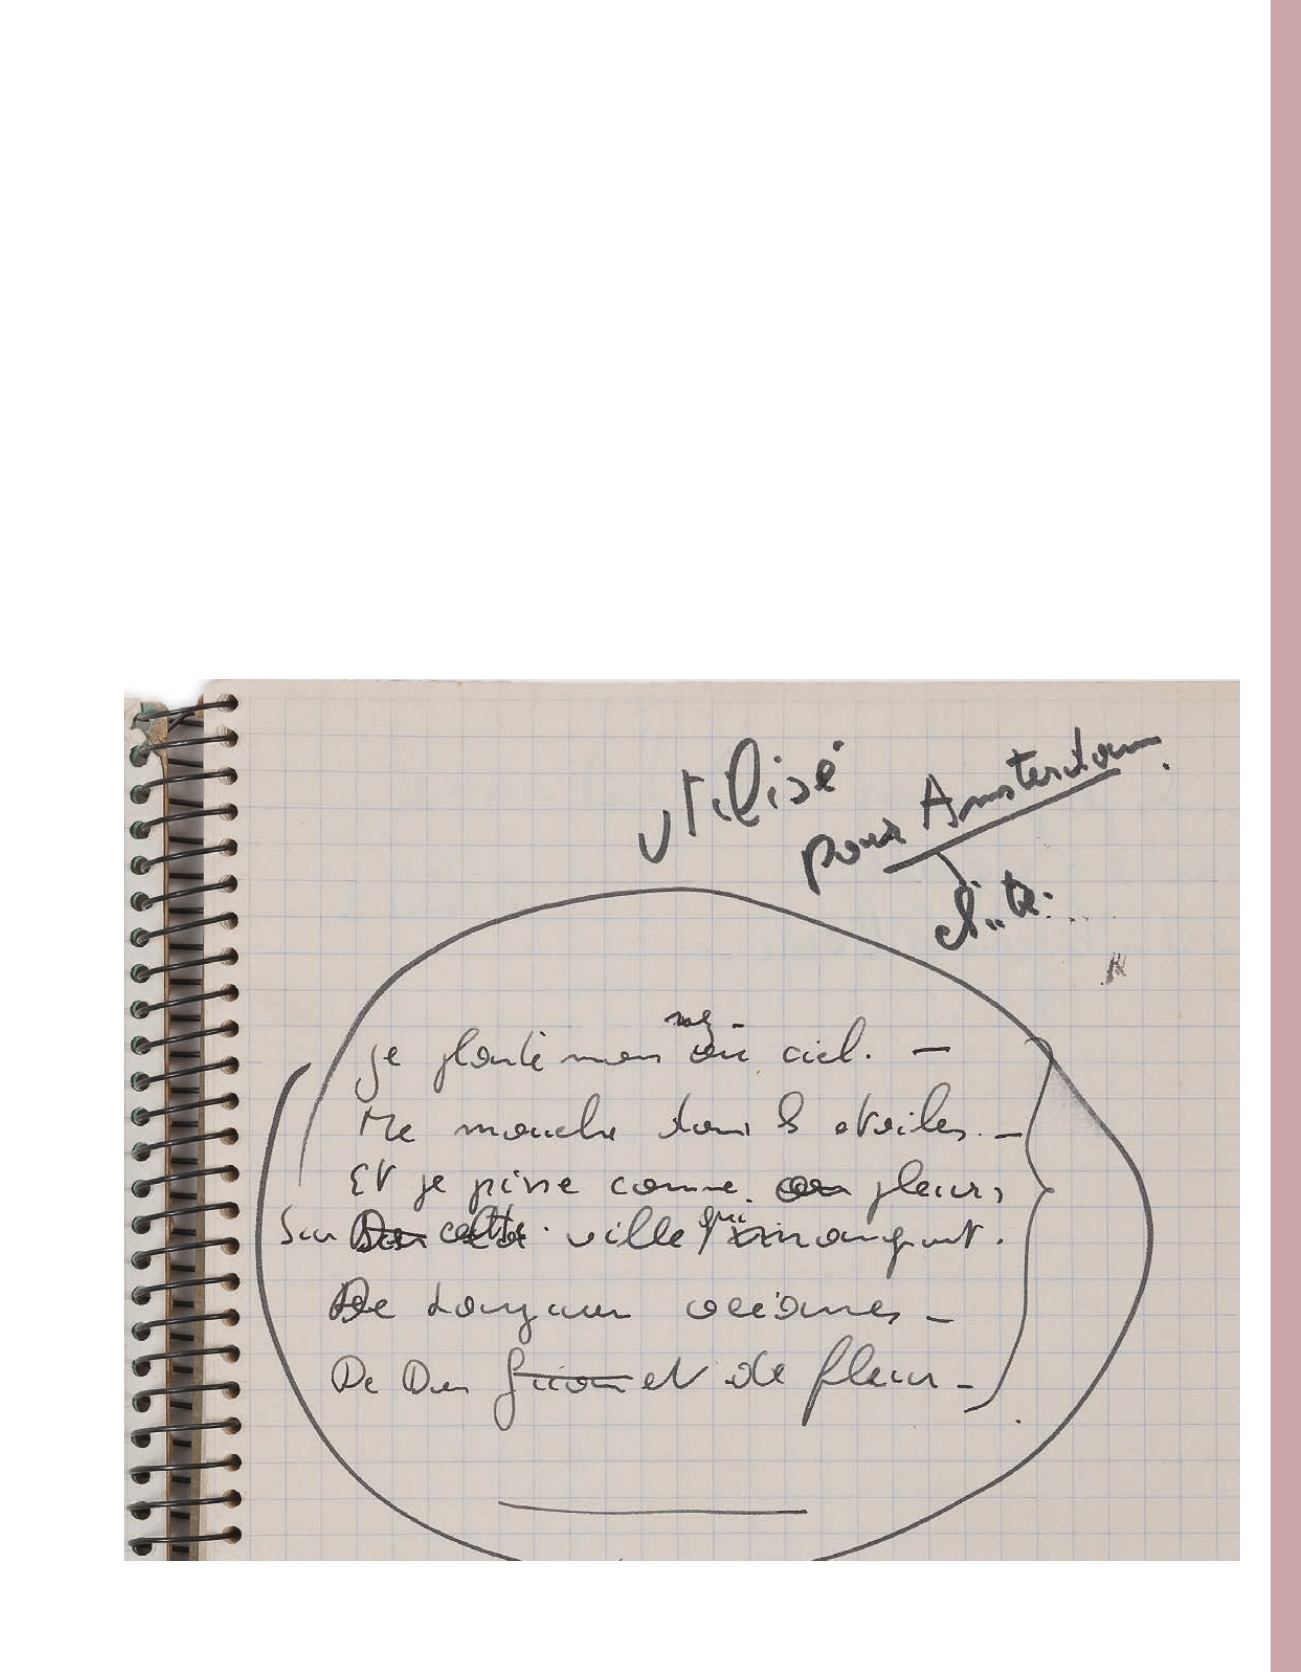 utilisé
pour Amsterdam.
je plante mon nez au ciel. —
Me mouche dans les etoiles. —
Et je pisse comme pleur,
Sur cette ville qui mangent.
De océanes —
De Dieu et de fleur —